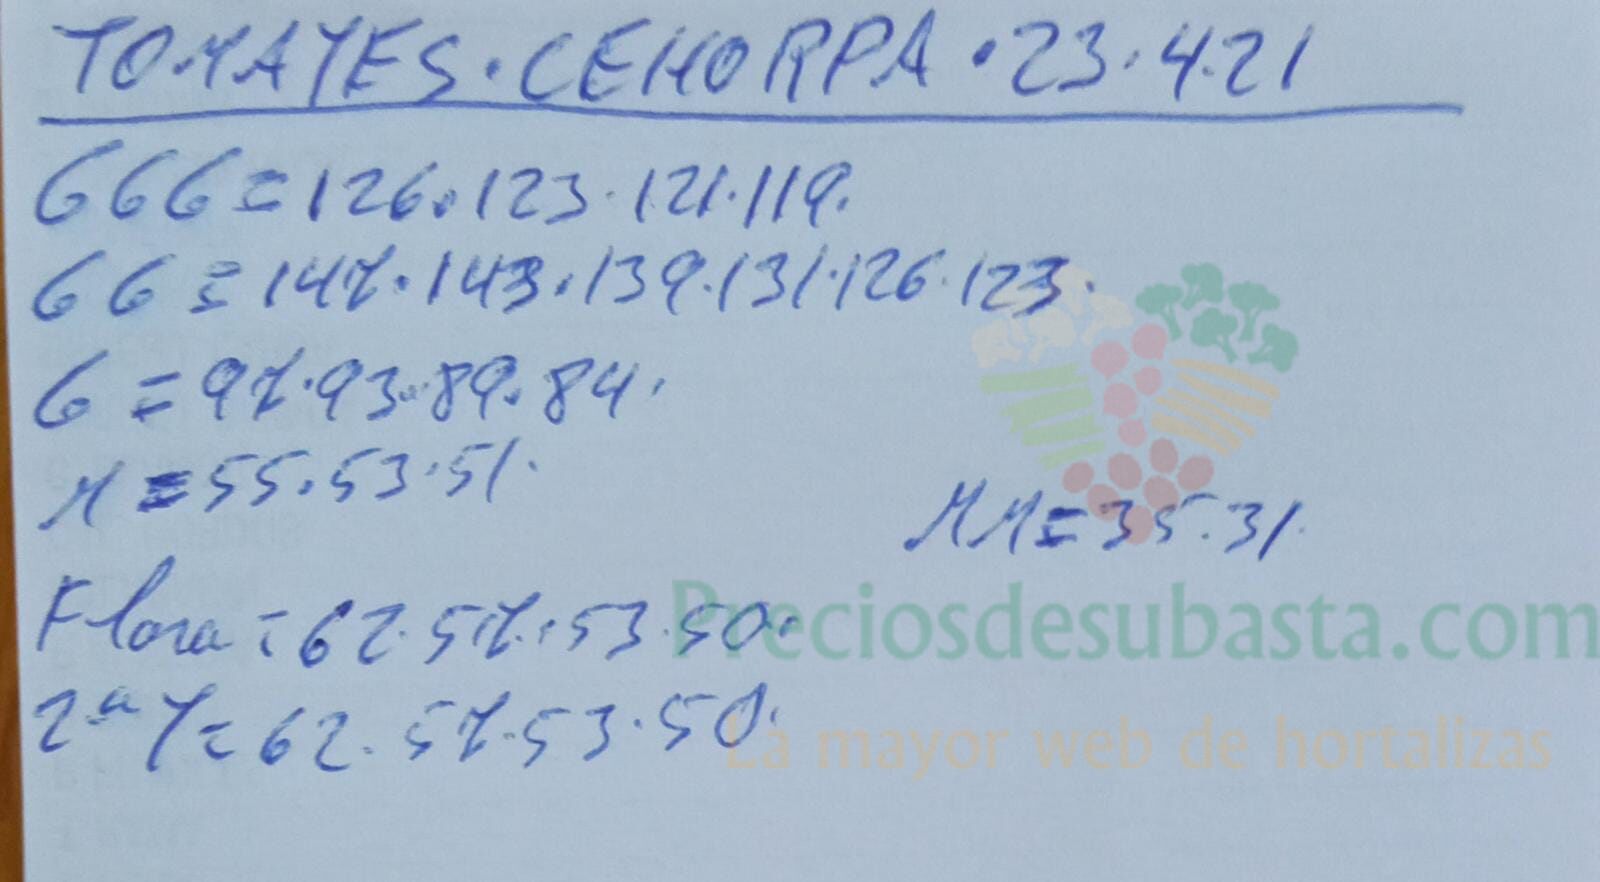 TOMATES · CEHORPA · 23 · 4 · 21
GGG = 126 · 123 · 121 · 119 ·
GG = 147 · 143 · 139 · 131 · 126 · 123 ·
G = 97 · 93 · 89 · 84 ·
M = 55 · 53 · 51 ·
MM = 35 · 31 ·
Flora = 62 · 57 · 53 · 50 ·
Preciosdesubasta.com
2ª T = 62 · 57 · 53 · 50 ·
La mayor web de hortalizas